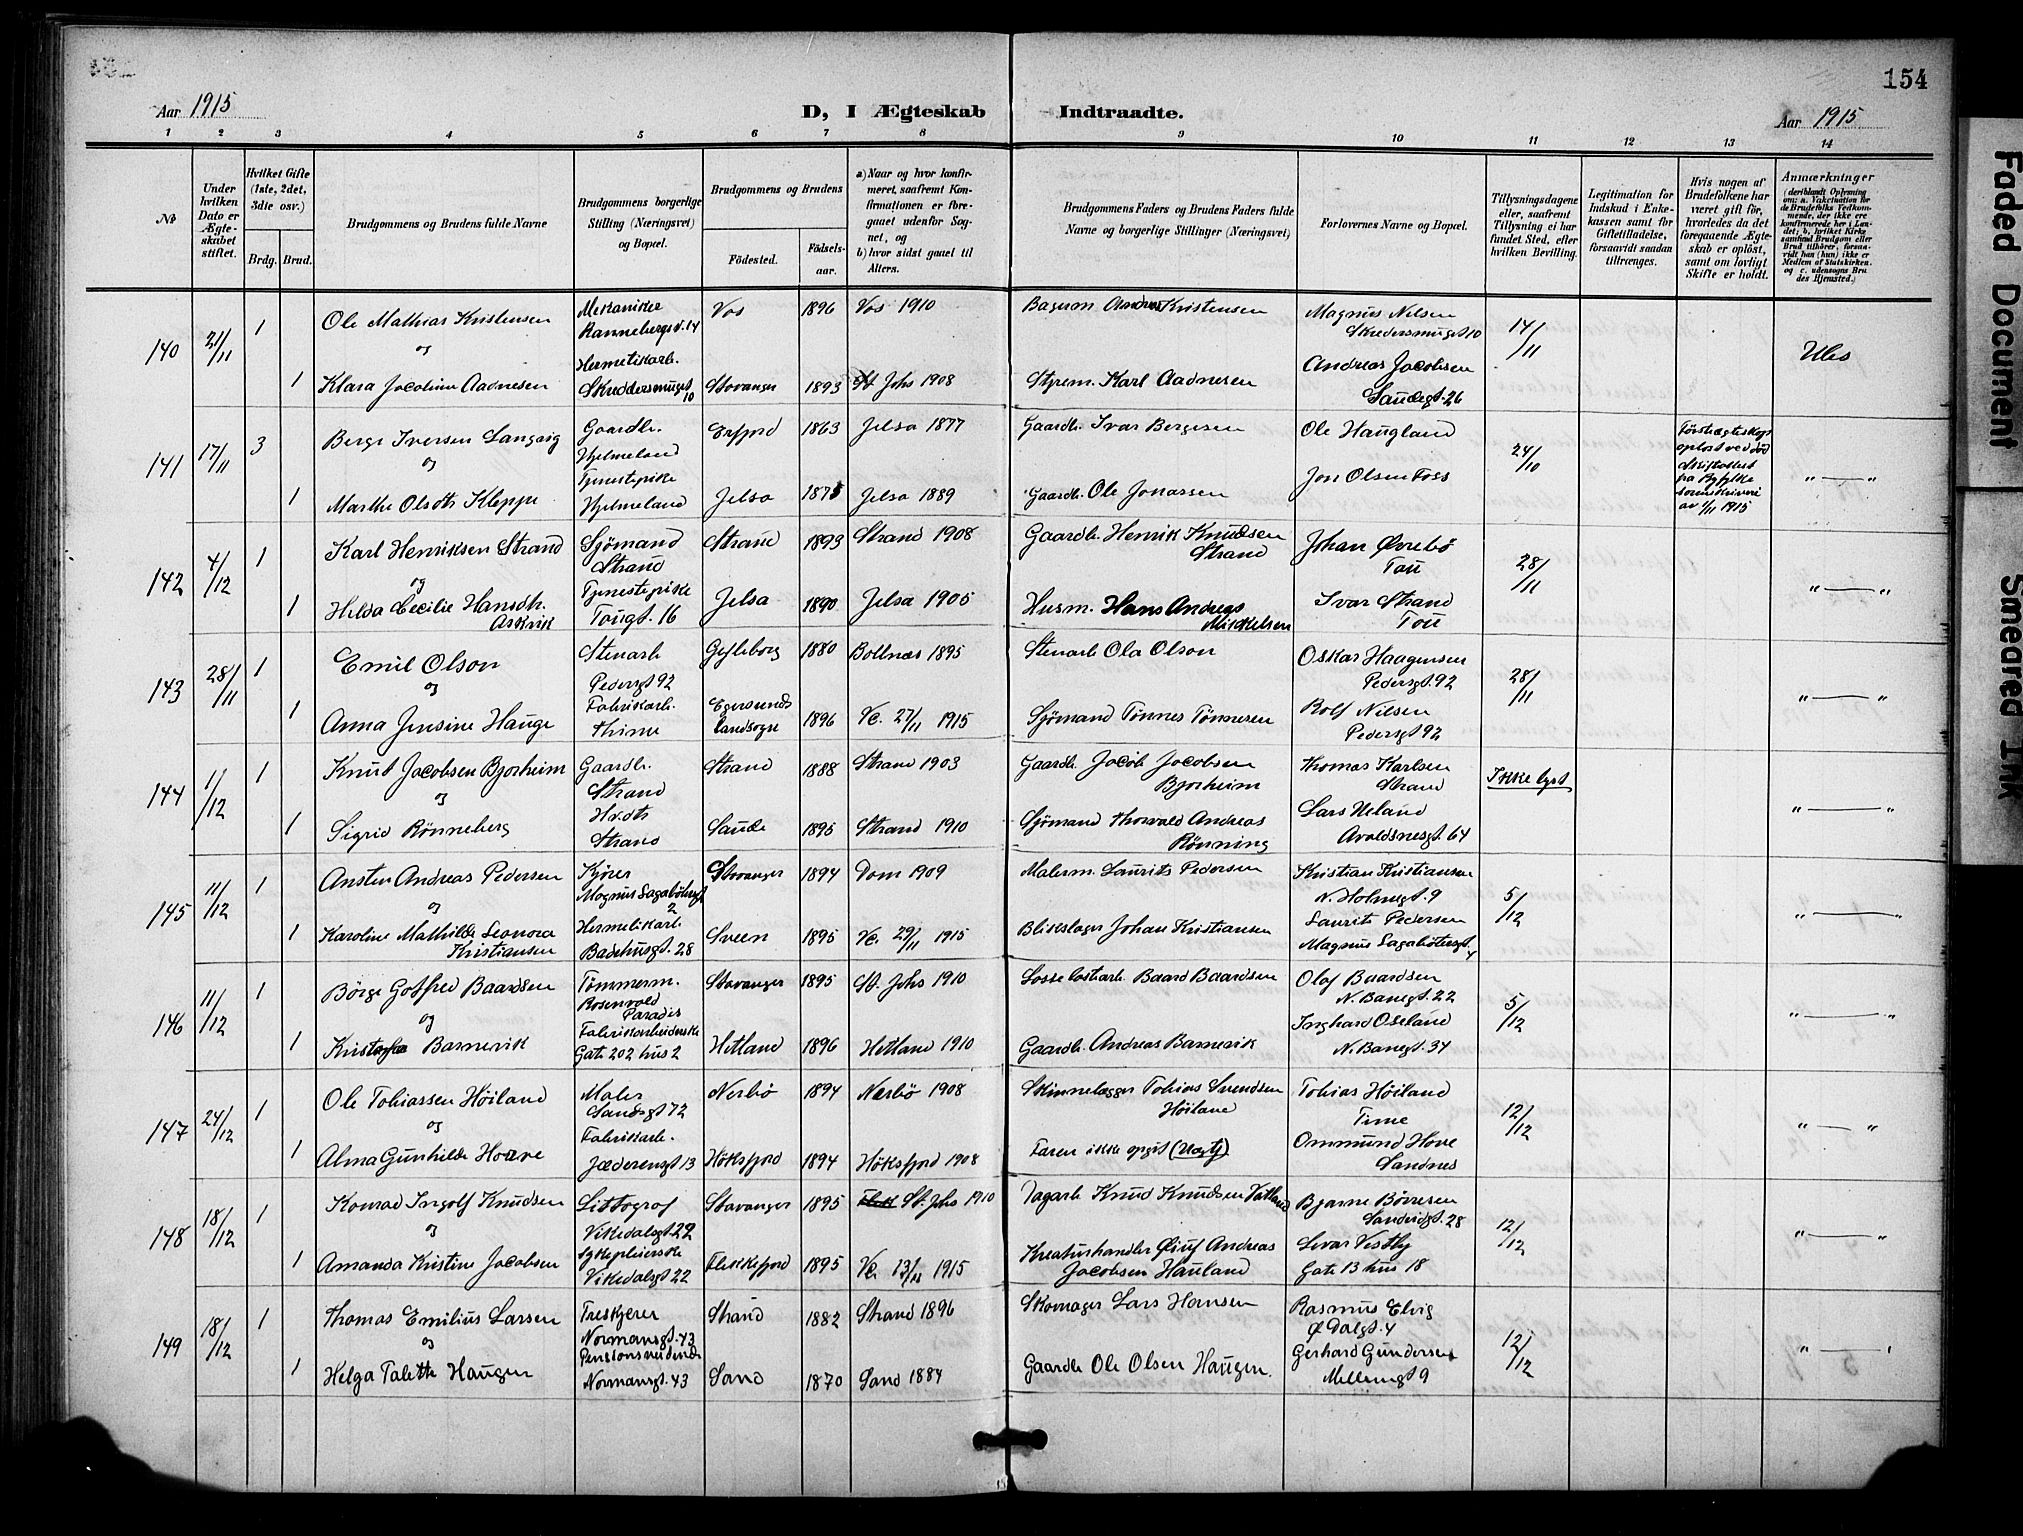 154
Aar 1915
D, I Ægteskab Indtraadte.
Aar 1915
1 2 3 4 5 6 7 8 9 10 11 12 13 14
No
Under hvilken Dato er Ægteskabet stiftet.
Hvilket Gifte (1ste, 2det, 3die osv.)
Brdg. Brud.
Brudgommens og Brudens fulde Navne
Brudgommens borgerlige Stilling (Næringsvei) og Bopæl.
Brudgommens og Brudens
Födested.
Födsels-aar.
a) Naar og hvor konfirmeret, saafremt Konfirmationen er foregaaet udenfor Sognet, og
b) hvor sidst gaaet til Alters.
Brudgommens Faders og Brudens Faders fulde Navne og borgerlige Stillinger (Næringsvei)
Forlovernes Navne og Bopæl.
Tillysningsdagene eller, saafremt Tillysning ei har fundet Sted, efter hvilken Bevilling.
Legitimation for Indskud i Enkekassen samt for Giftetilladelse, forsaavidt saadan tiltrænges.
Hvis nogen af Brudefolkene har været gift för, hvorledes da det foregaaende Ægteskab er oplöst, samt om lovligt Skifte er holdt.
Anmærkninger
(deriblandt Oplysning om: a. Vakcination for de Brudefolks Vedkommende, der ikke ere konfirmerede her i Landet; b. hvilket Kirkesamfund Brudgom eller Brud tilhører, forsaavidt han (hun) ikke er Medlem af Statskirken, og c. udensogns Brudes Hjemsted.)
140 21/11 1 Ole Mathias Kristensen Mekaniker Rannebergsg. 14 Vos 1896 Vos 1910 Bagerm Andreas Kristensen Magnus Nilsen Skredersmuget 10 14/11
og
1 Klara Jacobine Aadnesen Hermetikarb. Skreddersmuget 10 Stavanger 1893 St Johs 1908 Styrem. Karl Aadnesen Andreas Jacobsen Sandegt. 26
141 17/11 3 Berge Iversen Langvig Gaardbr. Hjelmeland Erfjord 1863 Jelsa 1877 Gaardb. Ivar Bergesen Ole Haugland 24/10
og
1 Marthe Olsdtr Kleppe Tjenestepike Hjelmeland Jelsa 1875 Jelsa 1889 Gaardb. Ole Jonassen Jon Olsen Foss
142 4/12 1 Karl Henriksen Strand Sjömand Strand Strand 1893 Strand 1908 Gaardb. Henrik Knudsen Strand Johan Øvrebö Tou 28/11
og
1 Helda Cecilie Hansdtr. Askvik Tjenestepike Tougt. 16 Jelsa 1890 Jelsa 1905 Husm. Hans Andreas Mikkelsen Ivar Strand Tou
143 28/11 1 Emil Olson Stenarb Pedersgt 92 Gefleborg 1880 Bollnæs 1895 Stenarb Ola Olson Oskar Haagensen Pedersgt. 92 28/11
og
1 Anna Jensine Hauge Fabrikarb. Thime Egersunds landsogn 1896 Vc. 27/11 1915 Sjömand Tönnes Tönnesen Rolf Nilsen Pedersgt 92
144 1/12 1 Knut Jacobsen Bjorheim Gaardb. Strand Strand 1888 Strand 1903 Gaardb. Jacob Jacobsen Bjorheim Thomas Karlsen Strand Ikke lyst
og
1 Sigrid Rönneberg Strand Saude 1895 Strand 1910 Sjömand Thorvald Andreas Rönning Lars Ueland Avaldsnesgt. 64
145 11/12 1 Ansten Andreas Pedersen Kjörer Magnus Lagabötersgt 2 Stavanger 1894 Dom 1909 Malerm. Laurits Pedersen Kristian Kristiansen N. Holmegt. 9 5/12
og
1 Karoline Mathilde Leonora Kristiansen Hermetikarb. Badehusgt. 28 Sveen 1895 Vc. 29/11 1915 Blikslager Johan Kristiansen Laurits Pedersen Magnus Lagabötersgt. 4
146 11/12 1 Börge Gotfred Baardsen Tömmerm. Rosenvold Paradis Stavanger 1895 St. Johs 1910 Losse lastearb. Baard Baardsen Olaf Baardsen N. Banegt. 22 5/12
og
1 Barnevik Fabrikarbeiderske Gate 202 hus 2 Hetland 1896 Hetland 1910 Gaardb. Andreas Barnevik Inghard Oseland N. Banegt. 34
147 24/12 1 Ole Tobiassen Höiland Maler Sandsgt 72 Nærbö 1894 Nærbö 1908 Skinnelægger Tobias Svendsen Höiland Tobias Höiland Time 12/12
og
1 Alma Gunhilde Hoave Fabrikarb. Jæderensgt 13 Höksfjord 1894 Höksfjord 1908 Faren ikke opgit Ommund Hove Sandnes
148 18/12 1 Konrad Ingolf Knudsen Littograf Vikedalsgt 22 Stavanger 1895 St. Johs 1910 Dagarb Knud Knudsen Vatland Bjarne Börresen Sandvidgt. 28 12/12
og
1 Amanda Kristine Jacobsen Sykepleierske Vikedalsgt 22 Flekkefjord 1895 Vc. 13/11 1915 Kreaturhandler Andreas Jacobsen Hauland Sivar Vestby Gate 13 hus 18
149 18/12 1 Thomas Emilius Larsen Treskjærer Normansgt. 43 Strand 1882 Strand 1896 Skomager Lars Hansen Rasmus Elvig Ø Dalgt. 4 12/12
og
1 Helga Talette Haugen Normansgt. 43 Sand 1870 Sand 1884 Gaardb Ole Olsen Haugen. Gerhard Gundersen Mellemgt 9
Faded Document
Smeared Ink